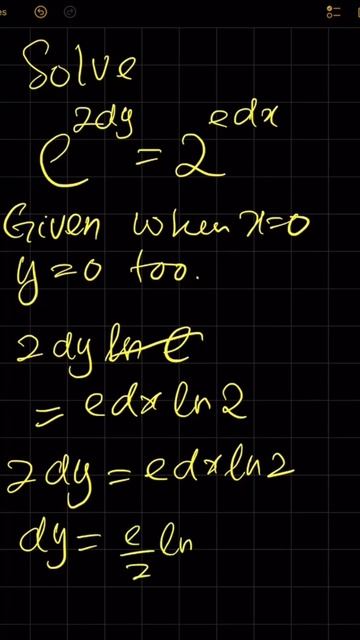 es
Solve
e^{2dy} = 2^{edx}
Given when x=0
y=0 too.
2dy ln e
= edx ln2
2dy = edx ln2
dy = e/2 ln